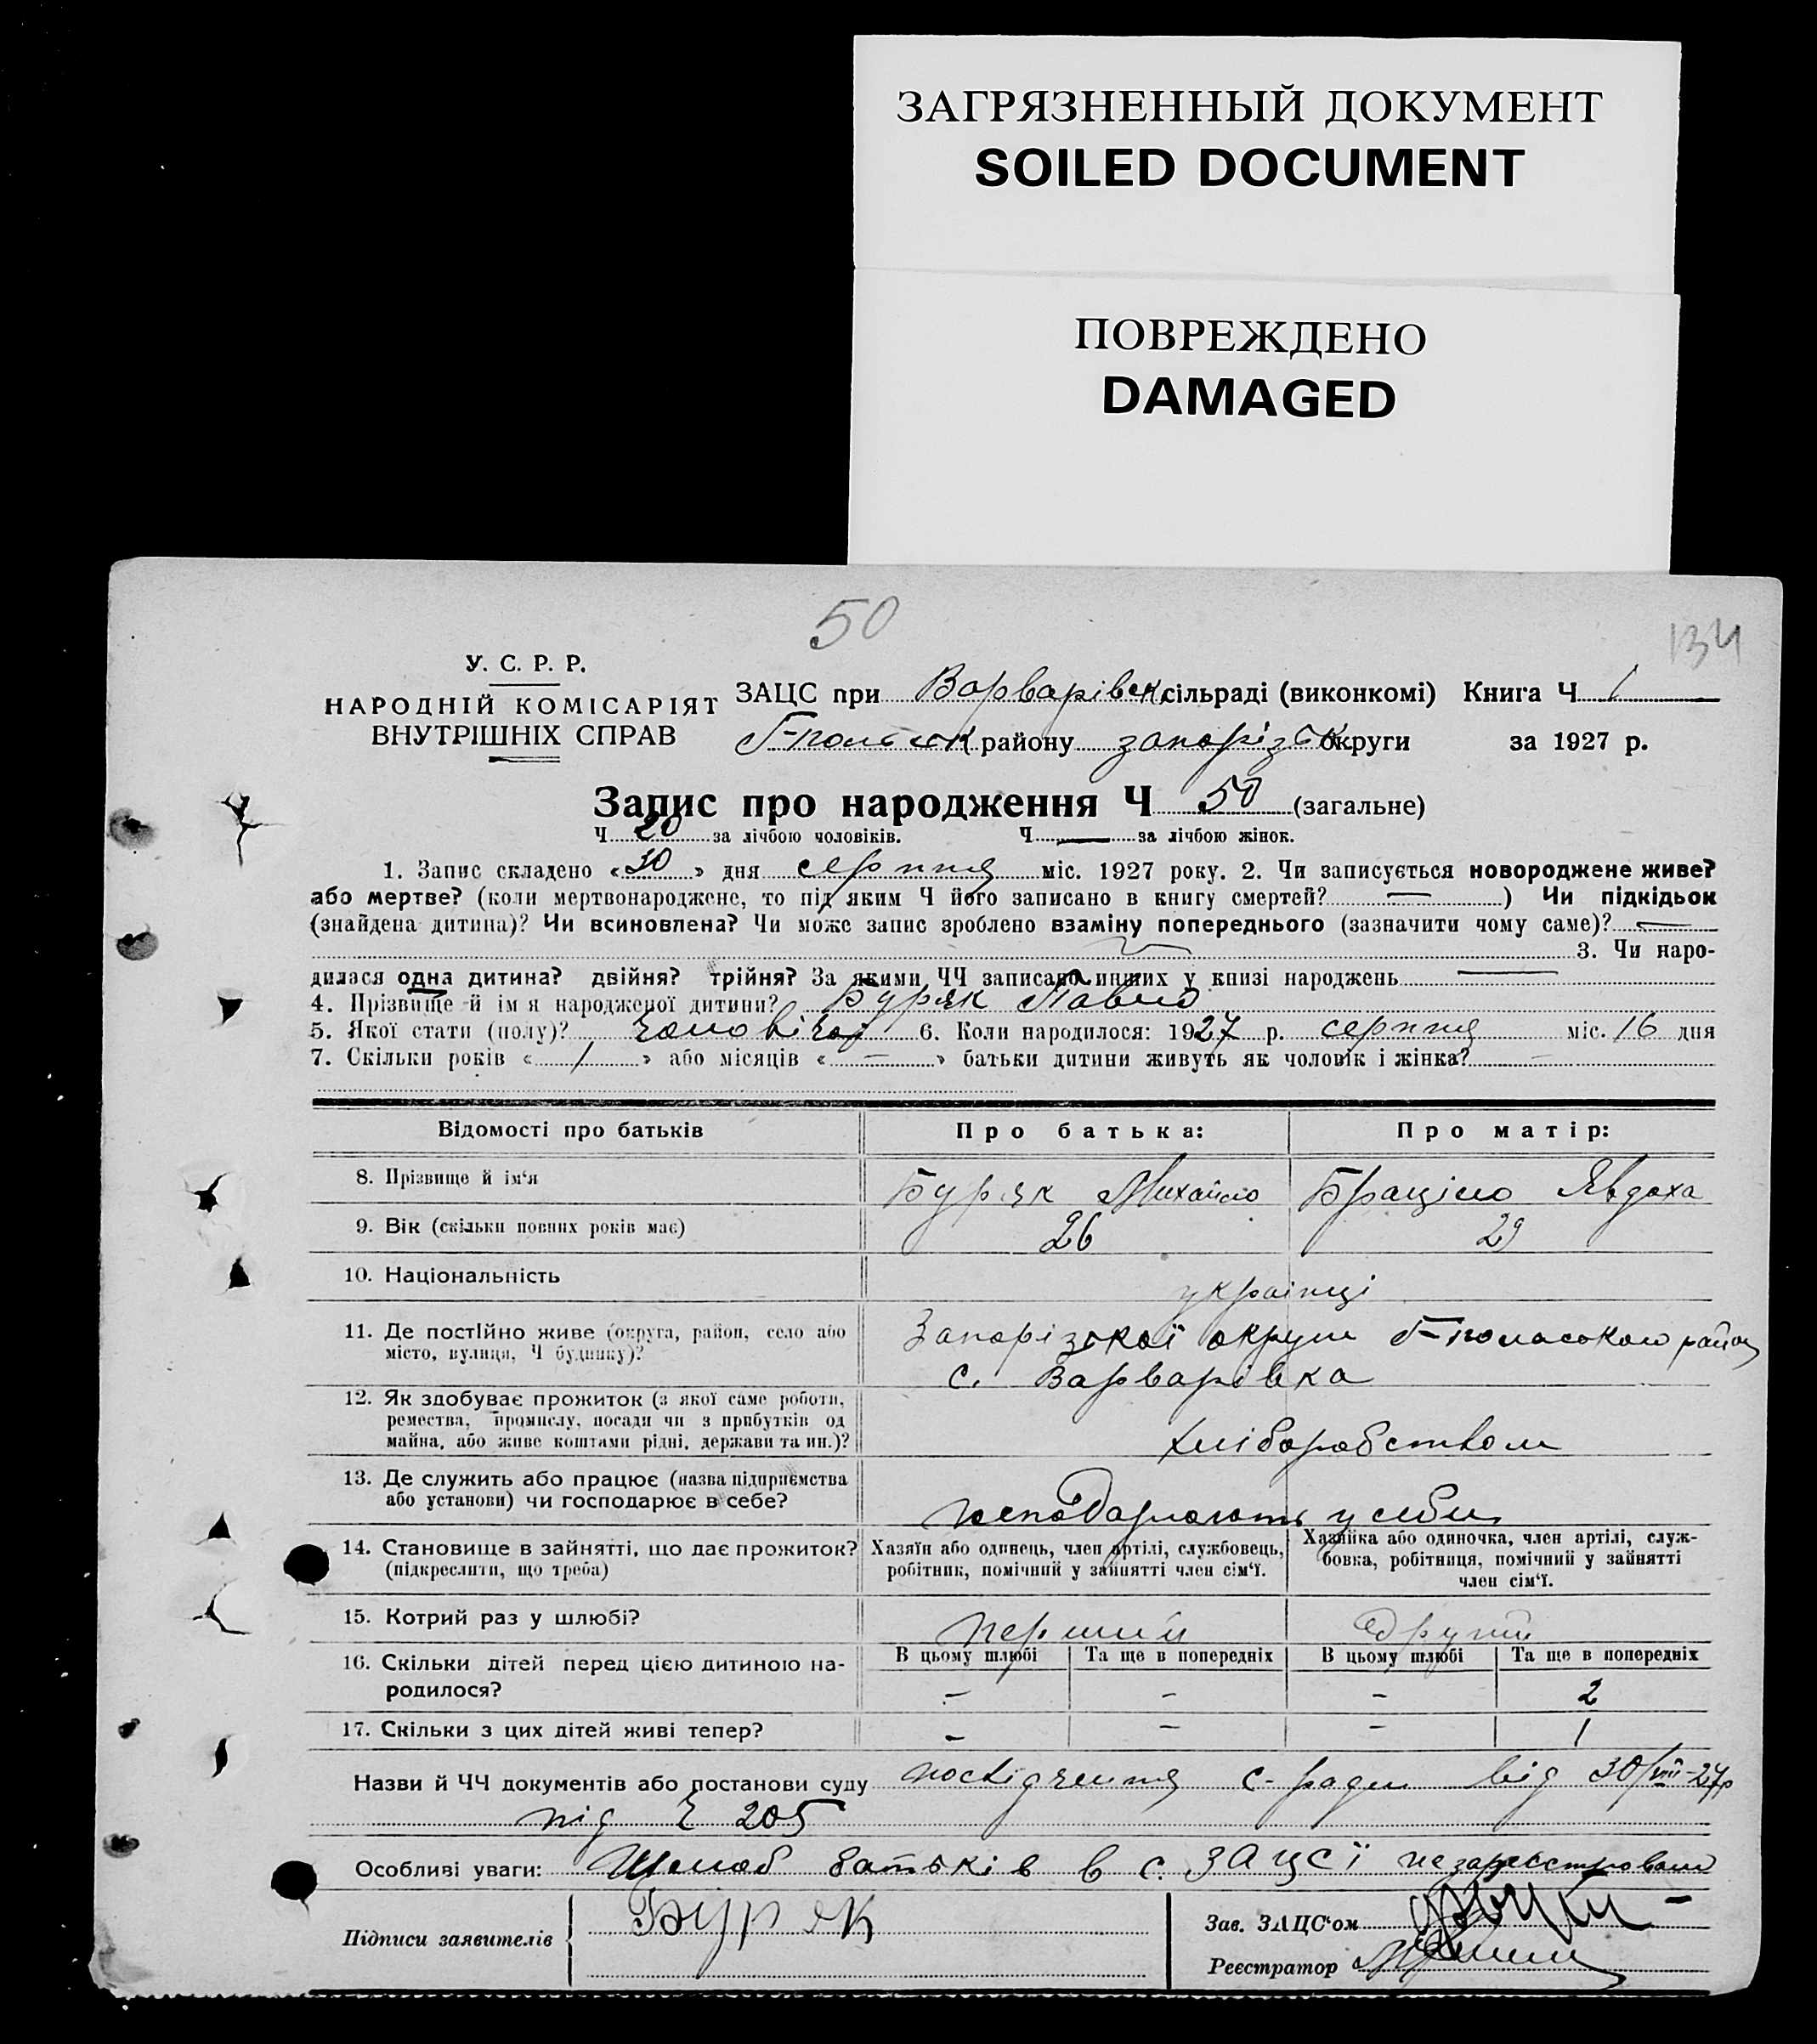 ЗАГРЯЗНЕННЫЙ ДОКУМЕНТ
SOILED DOCUMENT
ПОВРЕЖДЕНО
DAMAGED
50
134
У. С. Р. Р.
НАРОДНІЙ КОМІСАРІЯТ
ВНУТРІШНІХ СПРАВ
ЗАЦС при Варварівськ. сільраді (виконкомі) Книга Ч 1
Г-польськ району запорізьк округи за 1927 р.
Запис про народження Ч 50 (загальне)
Ч 20 за лічбою чоловіків. Ч — за лічбою жінок.
1. Запис складено «30» дня серпня міс. 1927 року. 2. Чи записується новороджене живе?
або мертве? (коли мертвонароджене, то під яким Ч його записано в книгу смертей? — ) Чи підкідьок
(знайдена дитина)? Чи всиновлена? Чи може запис зроблено взаміну попереднього (зазначити чому саме)? —
3. Чи наро-
дилася одна дитина? двійня? трійня? За якими ЧЧ записано инших у книзі народжень —
4. Прізвище й ім я народженої дитини? Буряк Павло
5. Якої стати (полу)? чоловічої 6. Коли народилося: 1927 р. серпня міс. 16 дня
7. Скільки років « 1 » або місяців « — » батьки дитини живуть як чоловік і жінка? —
Відомості про батьків Про батька: Про матір:
8. Прізвище й ім‘я Буряк Михайло Браціло Явдоха
9. Вік (скільки повних років має) 26 29
10. Національність українці
11. Де постійно живе (округа, район, село або Запорізької округи Г-польського району
місто, вулиця, Ч будинку)? с. Варварівка
12. Як здобуває прожиток (з якої саме роботи,
ремества, промислу, посади чи з прибутків од
майна, або живе коштами рідні, держави та ин.)? хліборобством
13. Де служить або працює (назва підприємства
або установи) чи господарює в себе? господарюють у себе
14. Становище в зайнятті, що дає прожиток? Хазяїн або одинець, член артілі, службовець, Хазяйка або одиночка, член артілі, служ-
(підкреслити, що треба) робітник, помічний у зайнятті член сім‘ї. бовка, робітниця, помічний у зайнятті
член сім‘ї.
15. Котрий раз у шлюбі? перший другий
16. Скільки дітей перед цією дитиною на- В цьому шлюбі Та ще в попередніх В цьому шлюбі Та ще в попередніх
родилося? – – – 2
17. Скільки з цих дітей живі тепер? – – – 1
Назви й ЧЧ документів або постанови суду посвідчення с-ради від 30/VIII-27р
під Ч 205
Особливі уваги: Шлюб батьків в с. ЗАЦСі незареєстровано
Підписи заявителів Буряк
Зав. ЗАЦС‘ом
Реєстратор